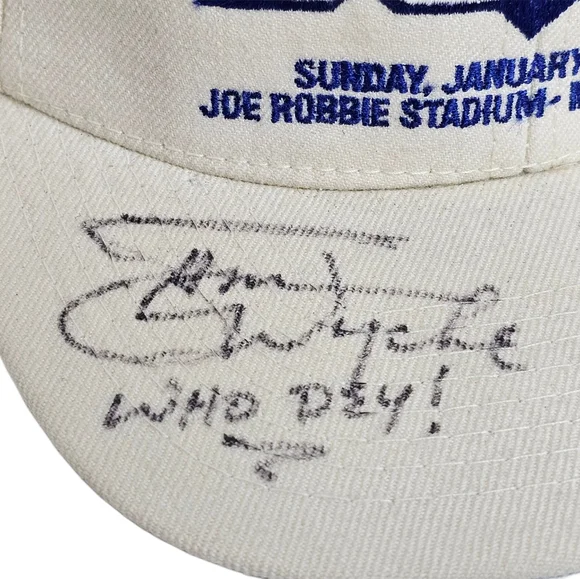 SUNDAY, JANUARY
JOE ROBBIE STADIUM -
Sam Wyche
WHO DEY!